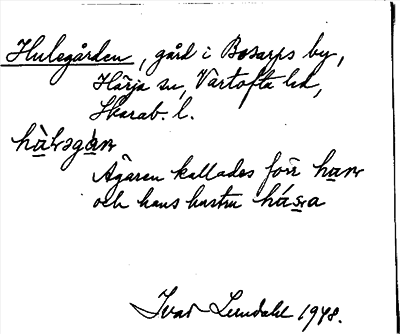 Hulegården, gård i Bosarps by,
Härja sn, Vartofta hd,
Skarab. l.
Ägaren kallades förr
och hans hustru
Ivar Lundahl 1948.